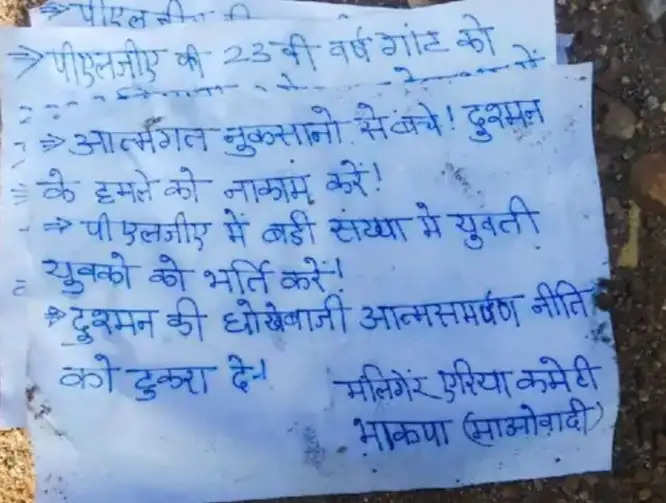 ⇒ पीएलजीए की
⇒ पीएलजीए की 23 वी वर्ष गांठ को
⇒ आत्मगत नुकसानो से बचे! दुश्मन
के हमले को नाकाम करें!
⇒ पीएलजीए में बडी संख्या मे युवती
युवको को भर्ति करें!
⇒ दुश्मन की धोखेबाजी आत्मसमर्पण नीति
को ठुकरा दे!
मलिगेर एरिया कमेटी
भाकपा (माओवादी)